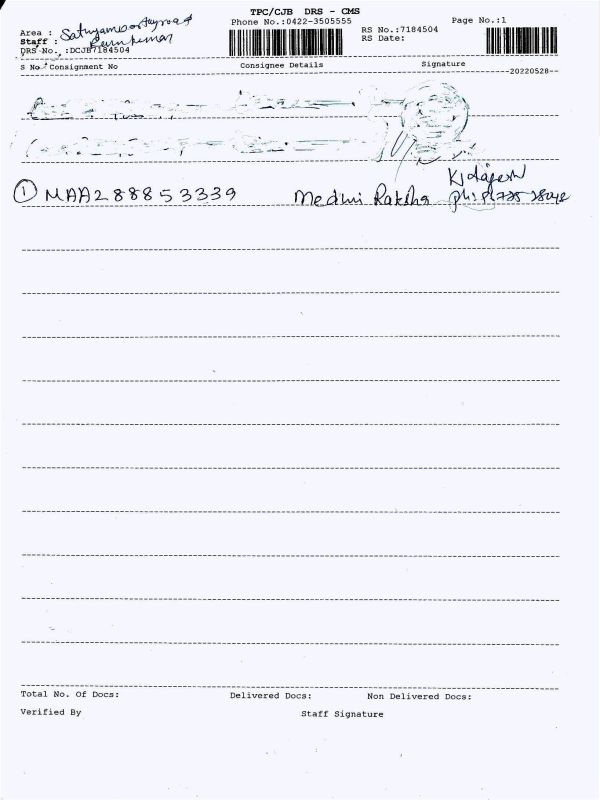 TPC/CJB DRS - CMS
Phone No.:0422-3505555
Page No.:1
Area :
RS No.:7184504
Staff :
RS Date:
DRS No. :DCJB7184504
S No Consignment No Consignee Details Signature
--20220528--
1 MAA288853339 Medhi Raksha
Total No. Of Docs: Delivered Docs: Non Delivered Docs:
Verified By Staff Signature